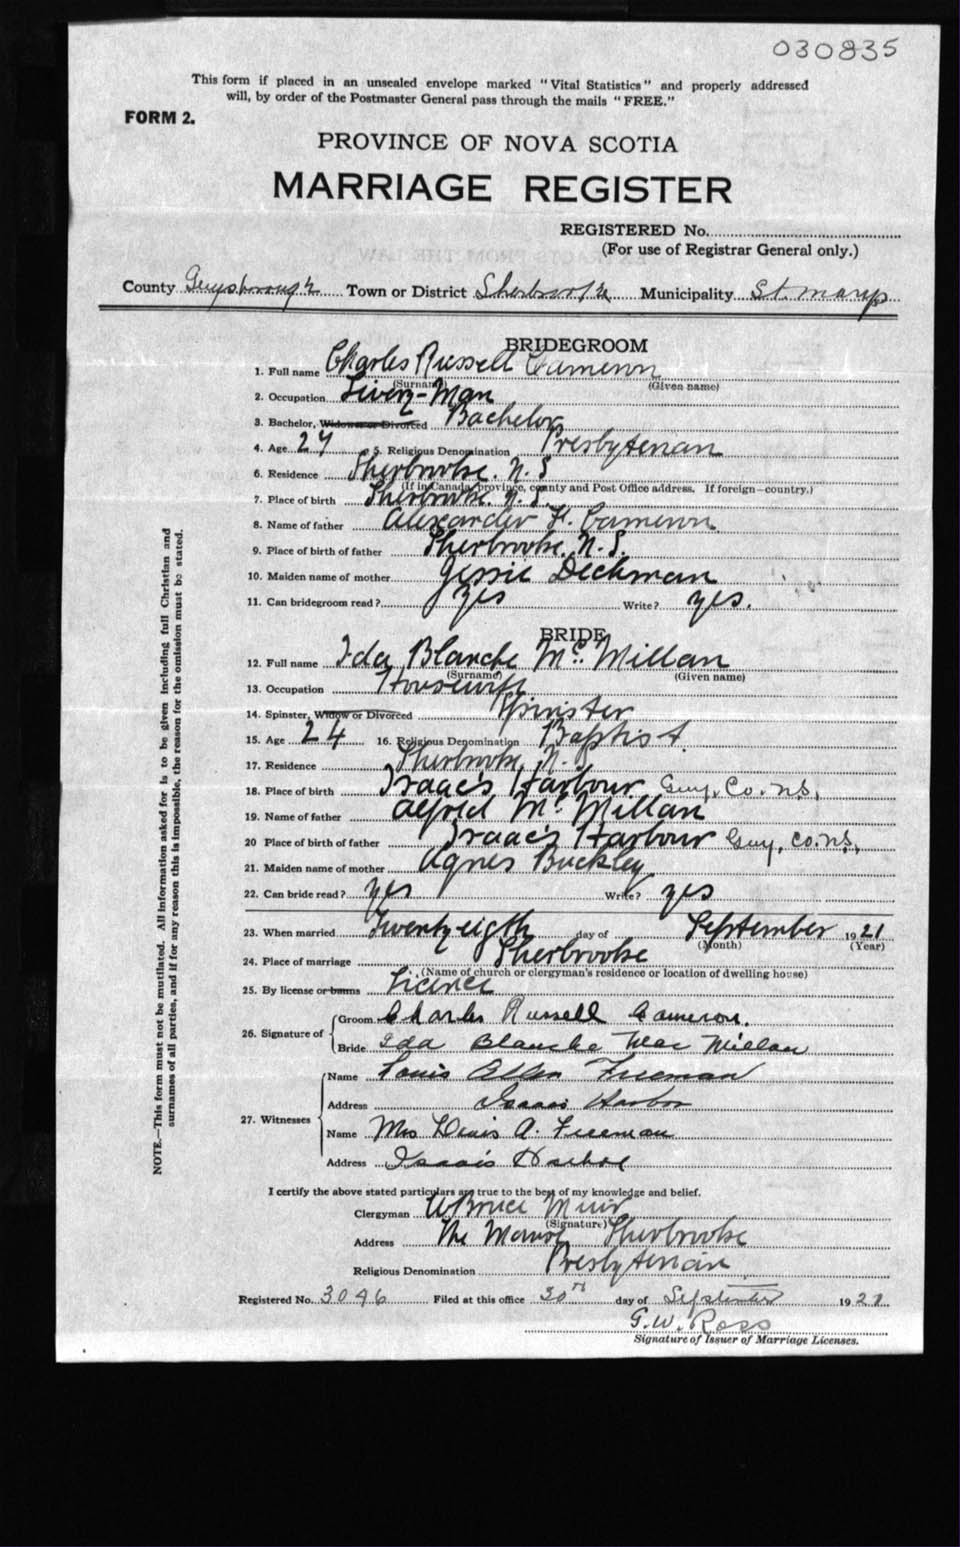 030835
This form if placed in an unsealed envelope marked "Vital Statistics" and properly addressed
will, by order of the Postmaster General pass through the mails "FREE."
FORM 2.
PROVINCE OF NOVA SCOTIA
MARRIAGE REGISTER
REGISTERED No.
(For use of Registrar General only.)
County Guysborough Town or District Sherbrooke Municipality St. Marys
BRIDEGROOM
1. Full name Charles Russell Cameron
(Surname) (Given name)
2. Occupation Livery-Man
3. Bachelor, Widower or Divorced Bachelor
4. Age 27 5. Religious Denomination Presbyterian
6. Residence Sherbrooke. N. S
(If in Canada, province, county and Post Office address. If foreign—country.)
7. Place of birth Sherbrooke. N. S.
8. Name of father Alexander F. Cameron
9. Place of birth of father Sherbrooke. N. S.
10. Maiden name of mother Jessie Deckman
11. Can bridegroom read? Yes Write? yes.
BRIDE
12. Full name Ida Blanche Mc. Millan
(Surname) (Given name)
13. Occupation Housewife
14. Spinster, Widow or Divorced Spinster
15. Age 24 16. Religious Denomination Baptist.
17. Residence Sherbrooke, N. S
18. Place of birth Isaac's Harbour Guy. Co. N.S.
19. Name of father Alfred Mc. Millan
20 Place of birth of father Isaac's Harbour Guy. Co. N.S.
21. Maiden name of mother Agnes Buckley
22. Can bride read? yes Write? yes
23. When married Twenty-eigth day of September 1921
(Month) (Year)
24. Place of marriage Sherbrooke
(Name of church or clergyman's residence or location of dwelling house)
25. By license or banns Licence
26. Signature of Groom Charles Russell Cameron.
Bride Ida Blanche MacMillan
27. Witnesses Name Louis Allen Freeman
Address Isaacs Harbor
Name Mrs Louis A. Freeman
Address Isaacs Harbor
I certify the above stated particulars are true to the best of my knowledge and belief.
Clergyman A Bruce Muir
(Signature)
Address The Manse Sherbrooke
Religious Denomination Presbyterian
Registered No. 3046 Filed at this office 30th day of September 1921
G. W. Ross
Signature of Issuer of Marriage Licenses.
NOTE.—This form must not be mutilated. All information asked for is to be given including full Christian and
surnames of all parties, and if for any reason this is impossible, the reason for the omission must be stated.